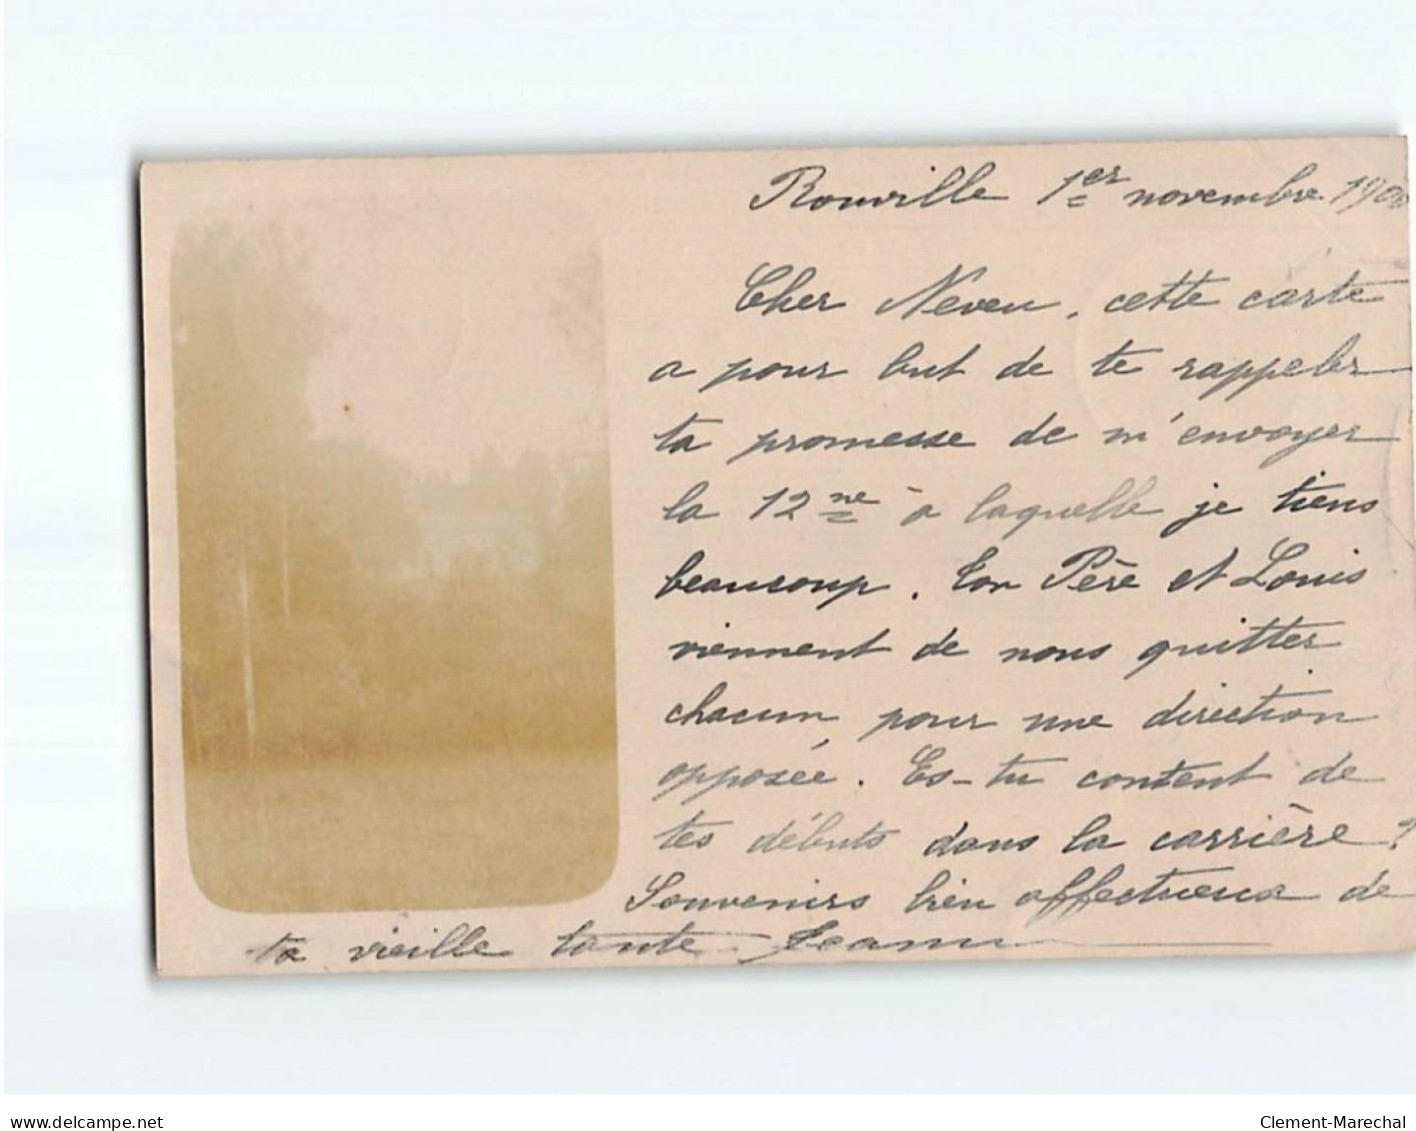 Rouville 1er novembre 1900
Cher Neveu, cette carte
a pour but de te rappeler
ta promesse de m'envoyer
la 12ne à laquelle je tiens
beaucoup. Ton Père et Louis
viennent de nous quitter
chacun pour une direction
opposée. Es-tu content de
tes débuts dans la carrière ?
Souvenirs bien affectueux de
ta vieille tante Jeanne
www.delcampe.net
Clement-Marechal